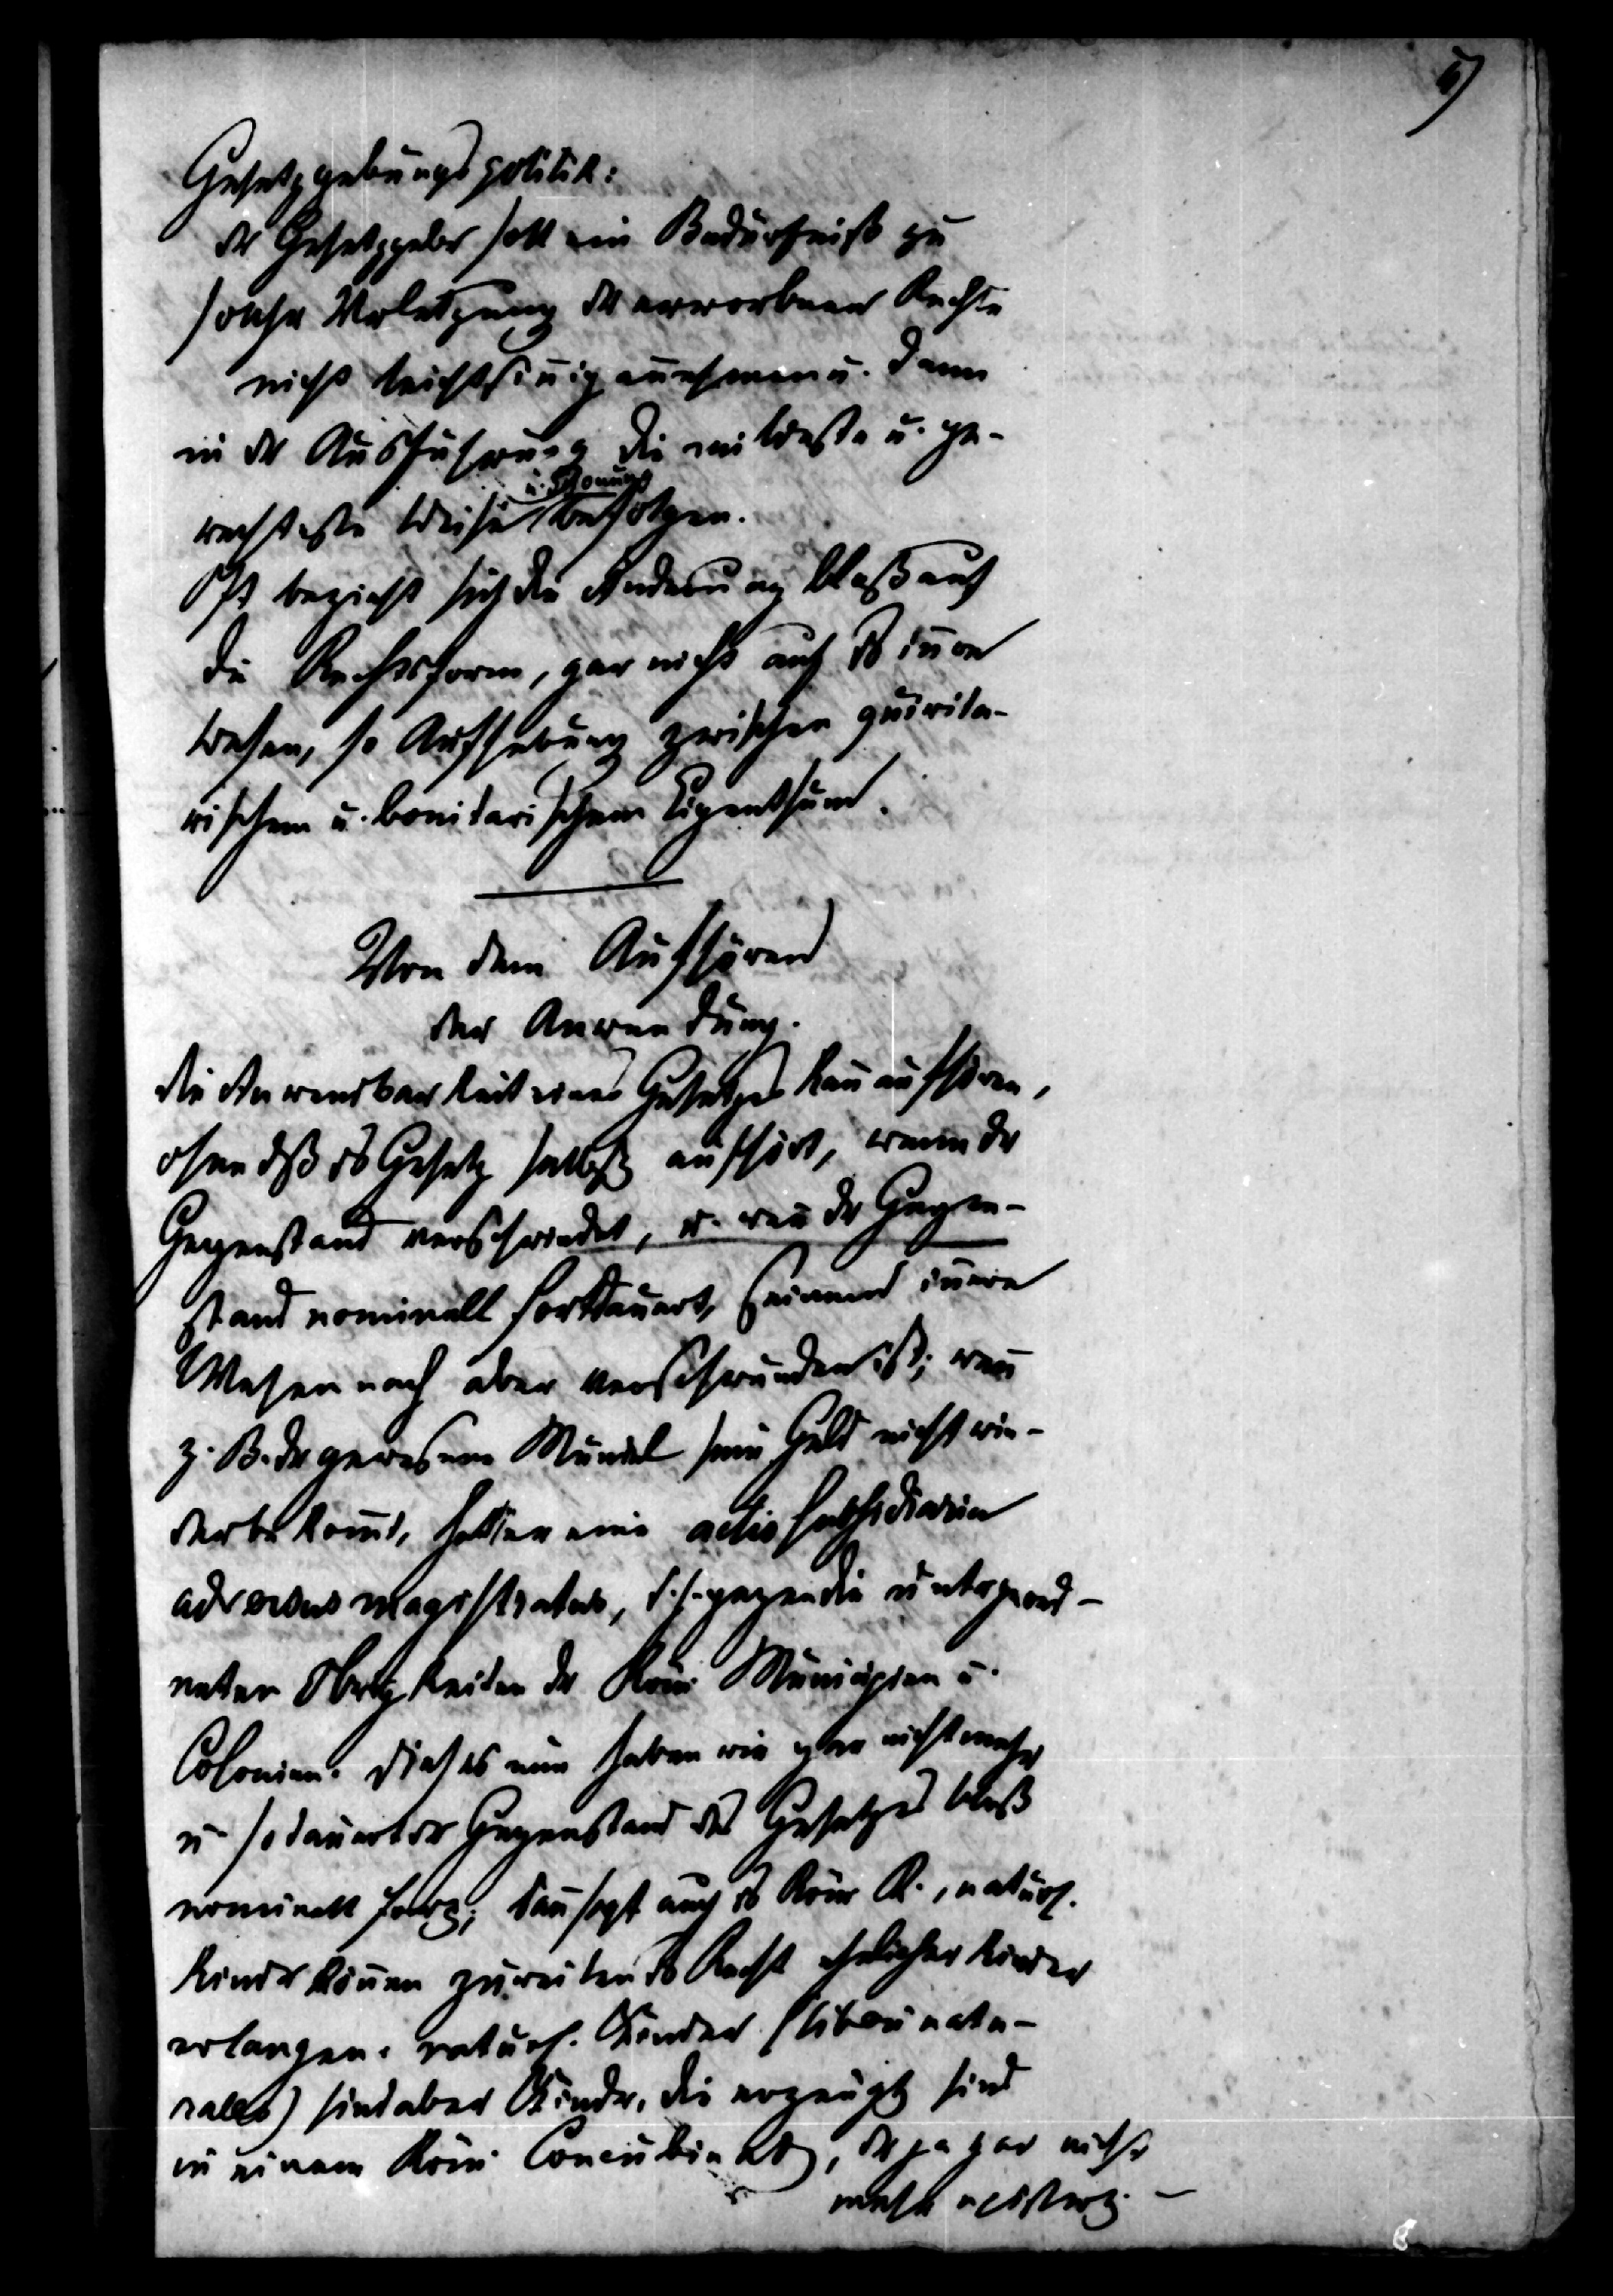 5)
Gesetzgebungspolitik:
der Gesetzgeber soll ein Bedürfniß zu
solcher Verletzung der erworbenen Rechte
nicht leichtsinnig annehmen u. dann
in der Ausführung die mildeste u. ge-
rechteste Weise befolgen.
u. Schonung
Oft bezieht sich die Änderung bloß auf
die Rechtsform, gar nicht auf das innere
Wesen, so Aufhebung zwischen quirita-
rischem u. bonitarischem Eigenthum.
Von dem Aufhören
der Anwendung.
die Anwendbarkeit eines Gesetzes kann aufhören,
ohne daß das Gesetz selbst aufhört, wenn der
Gegenstand verschwindet, u. wenn der Gegen-
stand nominell fortdauert, seinem innern
Wesen nach aber verschwunden ist; wenn
z. B. der gewesene Mündel sein Geld nicht wie-
derbekommt, hatte er eine actio subsidiaria
adversus magistratus, d. h. gegen die untergeord-
neten Obrigkeiten der Röm Municipien u.
Colonien. dieses nun haben wir gar nicht mehr
u. so dauert der Gegenstand des Gesetzes bloß
nominell fort; dann sagt auch das Röm R., natürl.
Kinder können zuweilen das Recht ehelicher Kinder
erlangen. natürl. Kinder (liberi natu-
rales) sind aber Kinder, die erzeugt sind
in einem Röm Concubinat, der ja gar nicht
mehr existirt. –